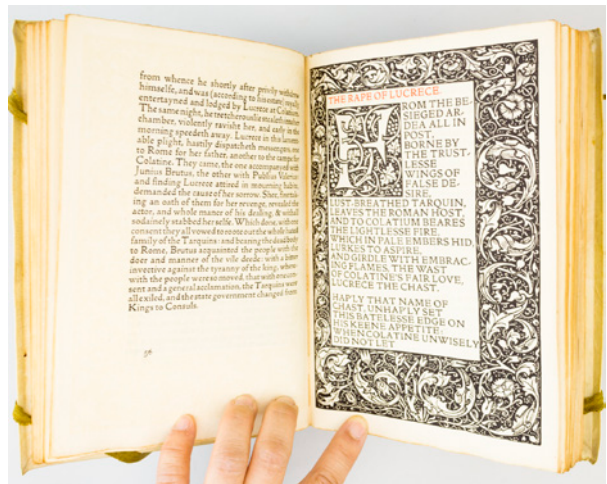 from whence he shortly after privily withdrew
himselfe, and was (according to his estate) royally
entertayned and lodged by Lucrece at Colatium.
The same night, he tretcherouslie stealeth into her
chamber, violently ravisht her, and early in the
morning speedeth away. Lucrece in this lament-
able plight, hastily dispatcheth messengers, one
to Rome for her father, another to the campe for
Colatine. They came, the one accompanyed with
Junius Brutus, the other with Publius Valerius:
and finding Lucrece attired in mourning habite,
demanded the cause of her sorrow. Shee, first tak-
ing an oath of them for her revenge, revealed the
actor, and whole maner of his dealing, & withall
sodainely stabbed her selfe. Which done, with one
consent they all vowed to roote out the whole hated
family of the Tarquins: and bearing the dead body
to Rome, Brutus acquainted the people with the
doer and manner of the vile deede: with a bitter
invective against the tyranny of the king, where-
with the people were so moved, that with one con-
sent and a general acclamation, the Tarquins were
all exiled, and the state government changed from
Kings to Consuls.
56
THE RAPE OF LUCRECE.
FROM THE BE-
SIEGED AR-
DEA ALL IN
POST,
BORNE BY
THE TRUST-
LESSE
WINGS OF
FALSE DE-
SIRE,
LUST-BREATHED TARQUIN,
LEAVES THE ROMAN HOST,
AND TO COLATIUM BEARES
THE LIGHTLESSE FIRE,
WHICH IN PALE EMBERS HID,
LURKES TO ASPIRE,
AND GIRDLE WITH EMBRAC-
ING FLAMES, THE WAST
OF COLATINE'S FAIR LOVE,
LUCRECE THE CHAST.
HAPLY THAT NAME OF
CHAST, UNHAPLY SET
THIS BATELESSE EDGE ON
HIS KEENE APPETITE:
WHEN COLATINE UNWISELY
DID NOT LET